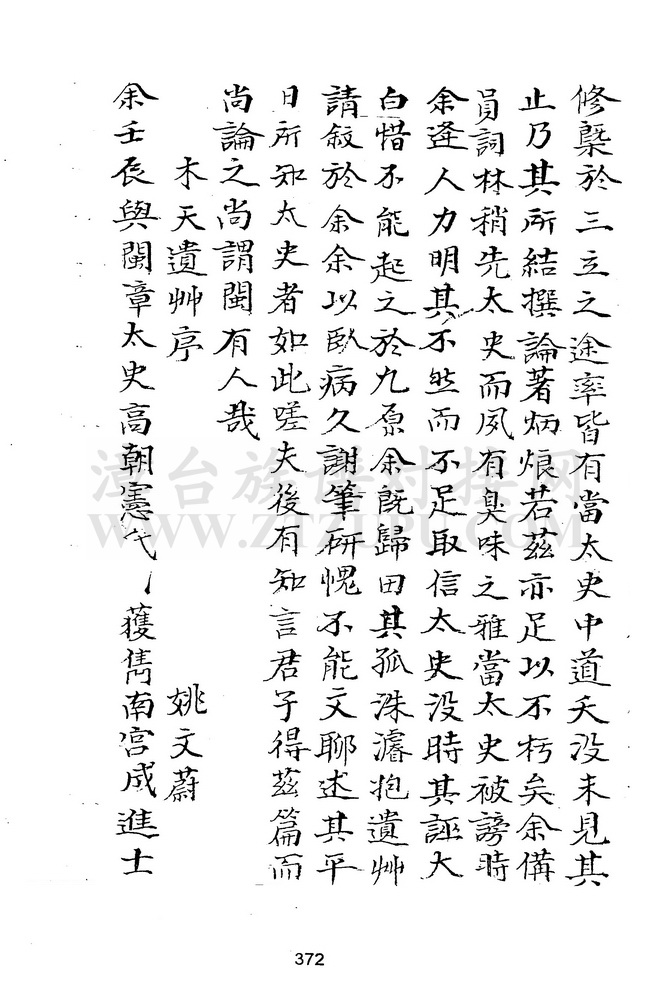 修槩於三立之途率皆有當太史中道夭没未見其
止乃其所結撰論著炳烺若茲亦足以不朽矣余俻
員詞林稍先太史而夙有臭味之雅當太史被謗時
余逢人力明其不然而不足取信太史没時其誣大
白惜不能起之於九原余旣歸田其孤洙濬抱遺艸
請敍於余余以臥病久謝筆研愧不能文聊述其平
日所知太史者如此嗟夫後有知言君子得茲篇而
尚論之尚謂閩有人哉
木天遺艸序 姚文蔚
余壬辰與閩章太史高朝憲氏獲雋南宮成進士
漳台族谱对接网
www.ztzupu.com
372